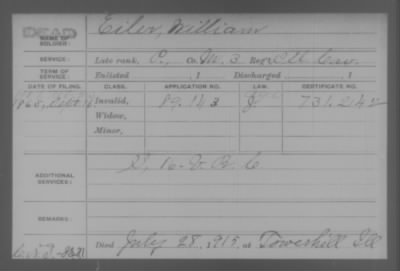 DEAD
NAME OF SOLDIER: Eiler, William
SERVICE: Late rank, P, Co. M. 3, Reg't Ill Cav.
TERM OF SERVICE: Enlisted , 1 Discharged , 1
DATE OF FILING. CLASS. APPLICATION NO. LAW. CERTIFICATE NO.
1865, Sept. Invalid, 89.143 731.214
Widow,
Minor,
ADDITIONAL SERVICES: D, 16 V R C
REMARKS:
Died July 28, 1915, at Towerhill Ill